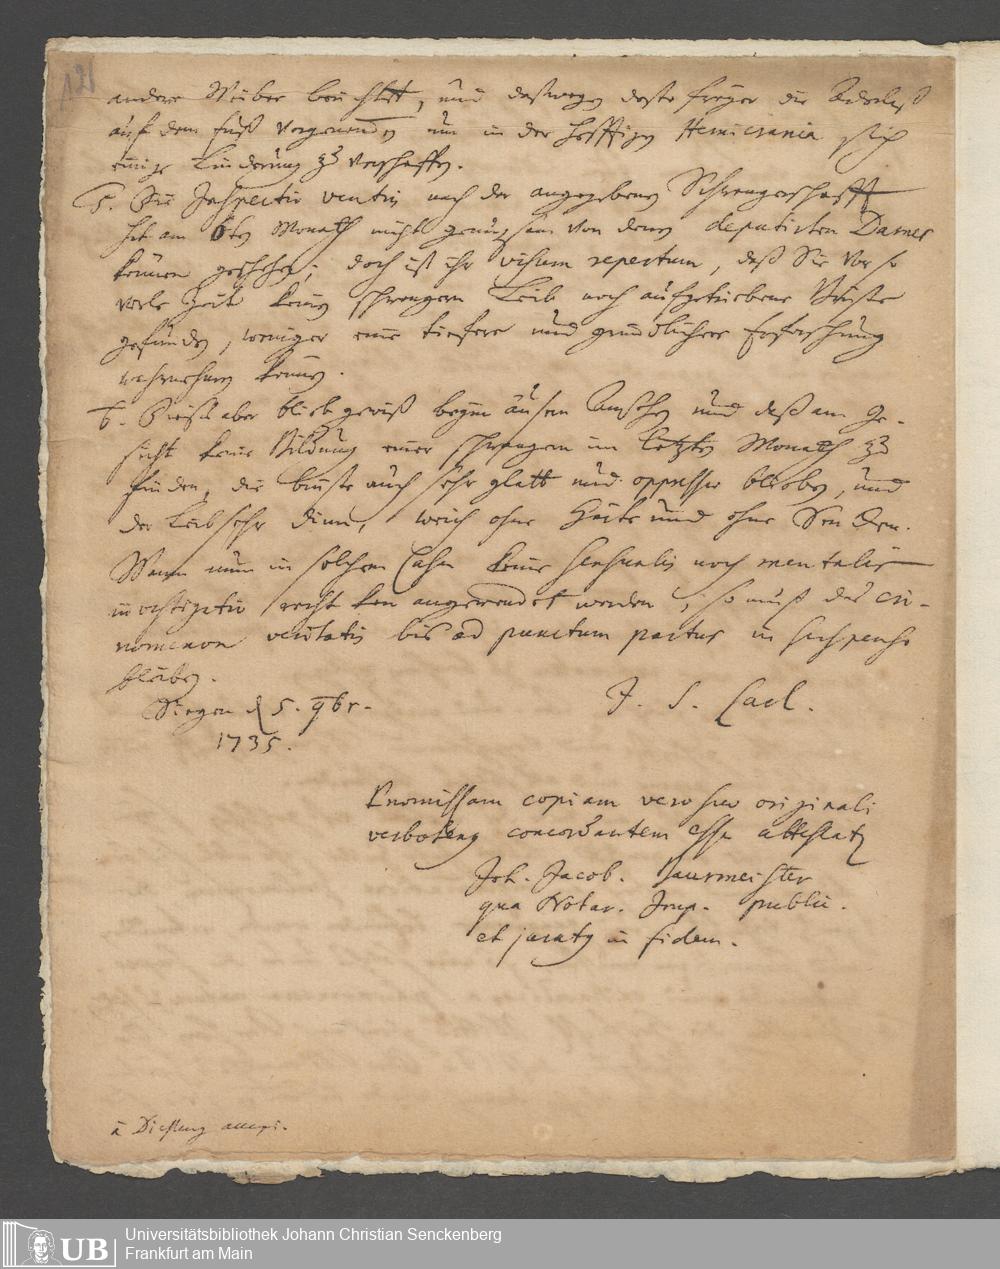 121
andere Weiber berichtet, und deßwegen desto freyer die Aderlaß
auf dem Fuß vorgenommen um in der hefftigen Hemicrania sich
einige Linderung zu verschaffen.
5. Die Inspectio ventris nach der angegebenen Schwangerschafft
hat am 6ten Monath nicht genugsam von denen deputirten Dames
können geschehen; doch ist ihr visum repertum, daß Sie vor so
viele Zeit keinen schwangern Leib noch aufgetriebene Brüste
gefunden, weniger eine tiefere und gründlichere Erforschung
vornehmen können.
6. aber blieb gewiß beym äusern Ansehen und daß am Ge-
sicht keine Bildung einer schwangern im letzten Monath zu
finden, die Brüste auch sehr glatt und oppressae blieben, und
der Leib sehr dünn, weich ohne Härte und ohne
Wann nun in solchem Casu keine sensualis noch mentalis
investigatio recht kan angewendet werden; so muß das cri-
nomenon veritatis bis ad punctum partus in suspenso
bleiben.
Siegen d 5. 9br.
1735.
J. S. Carl.
Praemissam copiam vero suo originali
verbotenus concordantem esse attestatur
Joh. Jacob. Baurmeister
qua Notar. Imp. public.
et juratus in fidem.
a accepi.
UB
Universitätsbibliothek Johann Christian Senckenberg
Frankfurt am Main